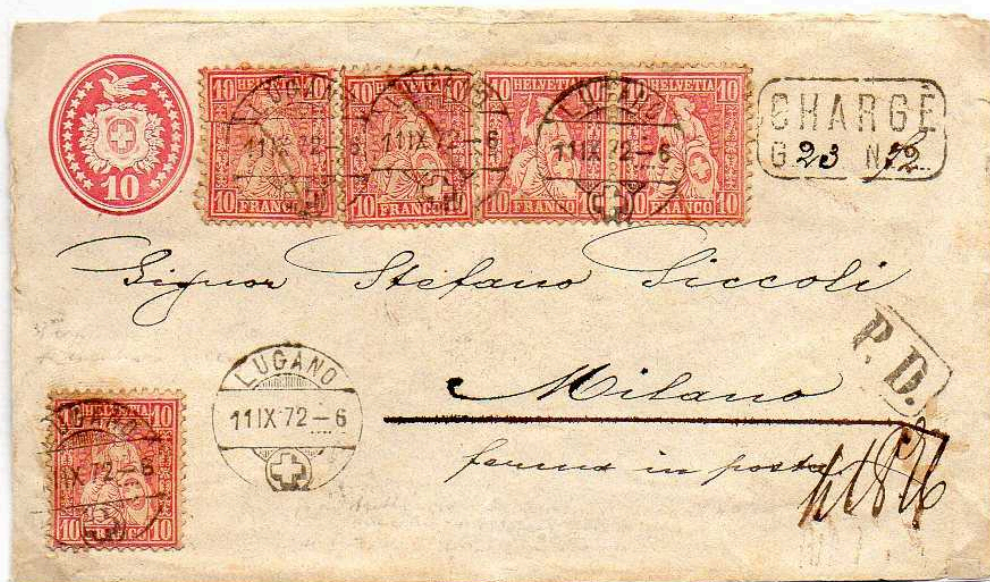 10
10 HELVETIA 10
10 FRANCO 10
LUGANO
11 IX 72-6
10 HELVETIA 10
10 FRANCO 10
LUGANO
11 IX 72-6
10 HELVETIA 10
10 FRANCO 10
LUGANO
11 IX 72-6
HELVETIA 10
FRANCO 10
CHARGÉ
G 23 N 72
Signor Stefano Siccoli
P.D.
Milano
ferma in posta
LUGANO
11 IX 72-6
HELVETIA 10
10 FRANCO 10
LUGANO
IX 72-6